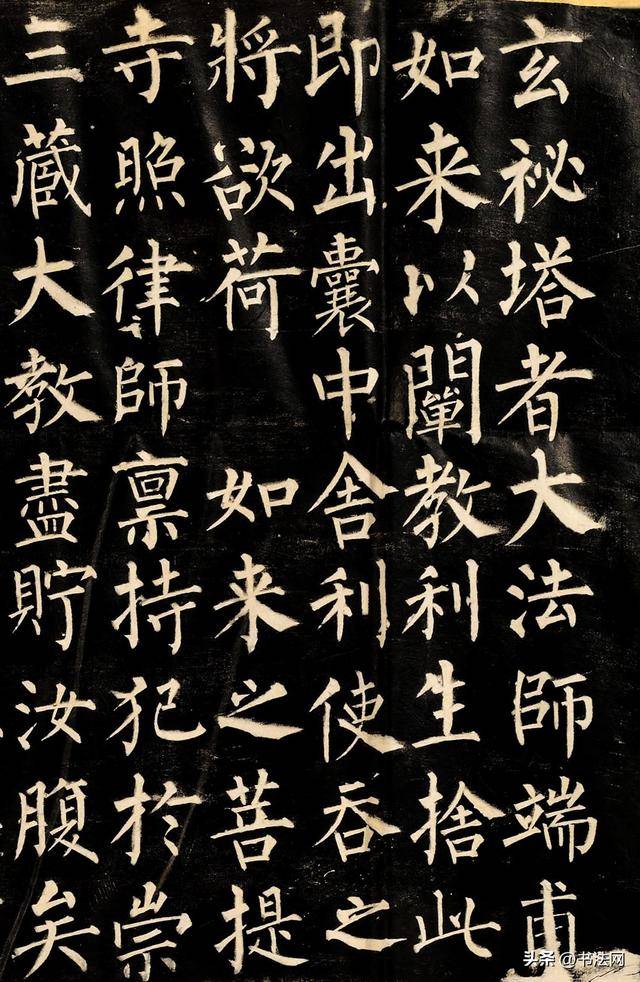 玄祕塔者大法師端甫
如来以闡教利生捨此
即出囊中舍利使吞之
將欲荷 如来之菩提
寺照律師 禀持犯於崇
三藏大教盡貯汝腹矣
头条 @书法网